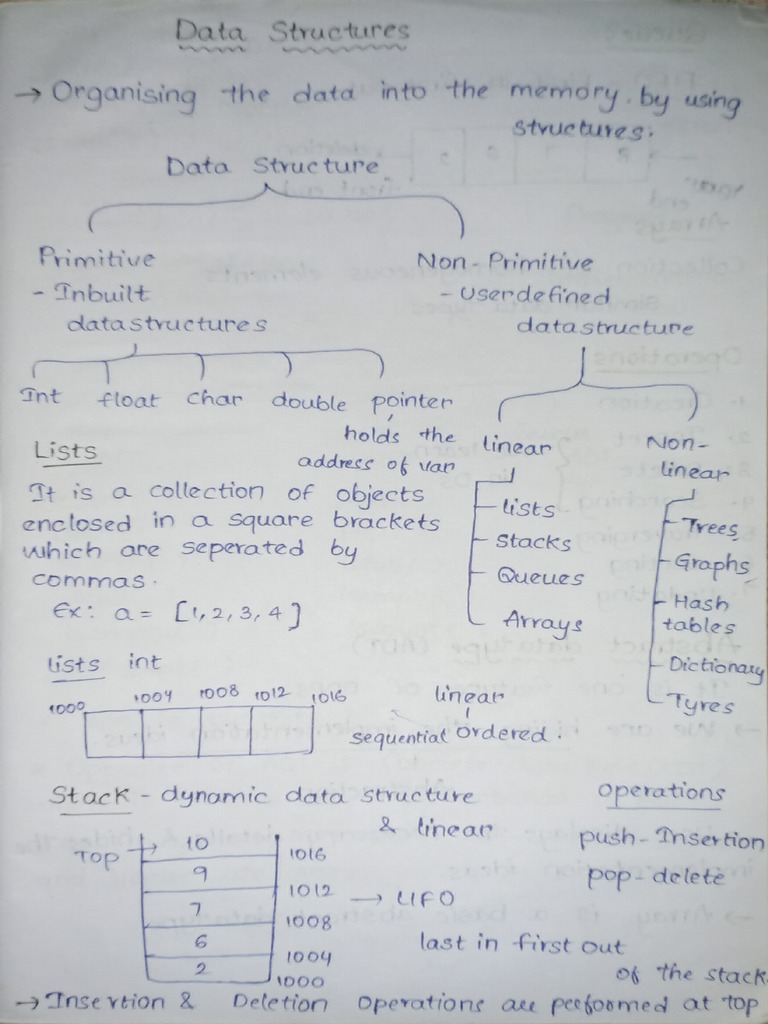 Data Structures
→ Organising the data into the memory by using
structures.
Data Structure
Primitive
- Inbuilt
datastructures
Non-Primitive
- userdefined
datastructure
Int float char double pointer
holds the
address of var
linear
- lists
- Stacks
- Queues
- Arrays
Non-
linear
- Trees
- Graphs
- Hash
tables
- Dictionary
- Tyres
Lists
It is a collection of objects
enclosed in a square brackets
which are seperated by
commas.
Ex: a = [1, 2, 3, 4]
lists int
1000 1004 1008 1012 1016
linear
sequential ordered.
Stack - dynamic data structure
& linear
TOP → 10
9
7
6
2
1016
1012
1008
1004
1000
→ LIFO
last in first out
of the stack
operations
push - Insertion
pop - delete
→ Insertion & Deletion operations are performed at top